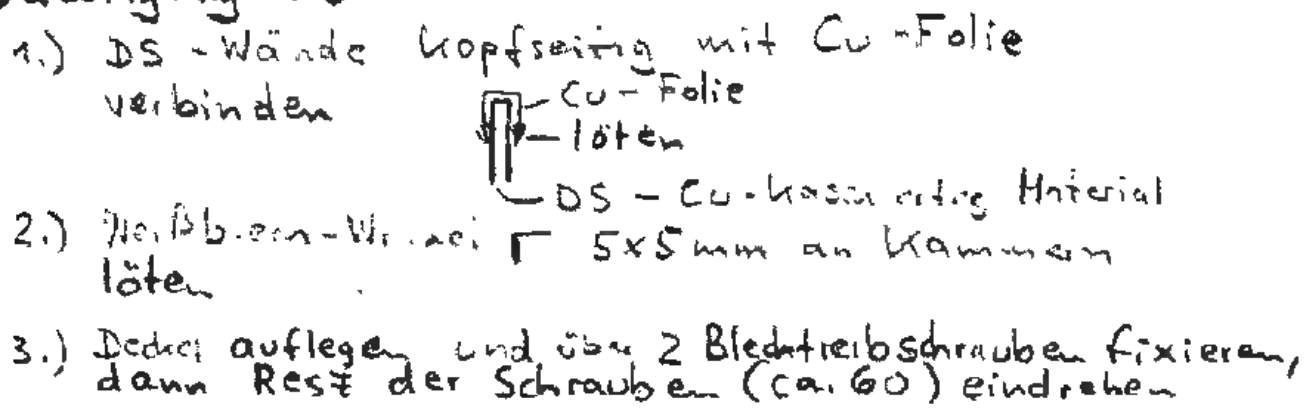 1.) DS - Wände kopfseitig mit Cu-Folie
verbinden
Cu - Folie
löten
DS - Cu-kaschiertes Material
2.) Weißblech-Winkel 5x5 mm an Kammern
löten
3.) Deckel auflegen und über 2 Blechtreibschrauben fixieren,
dann Rest der Schrauben (ca. 60) eindrehen